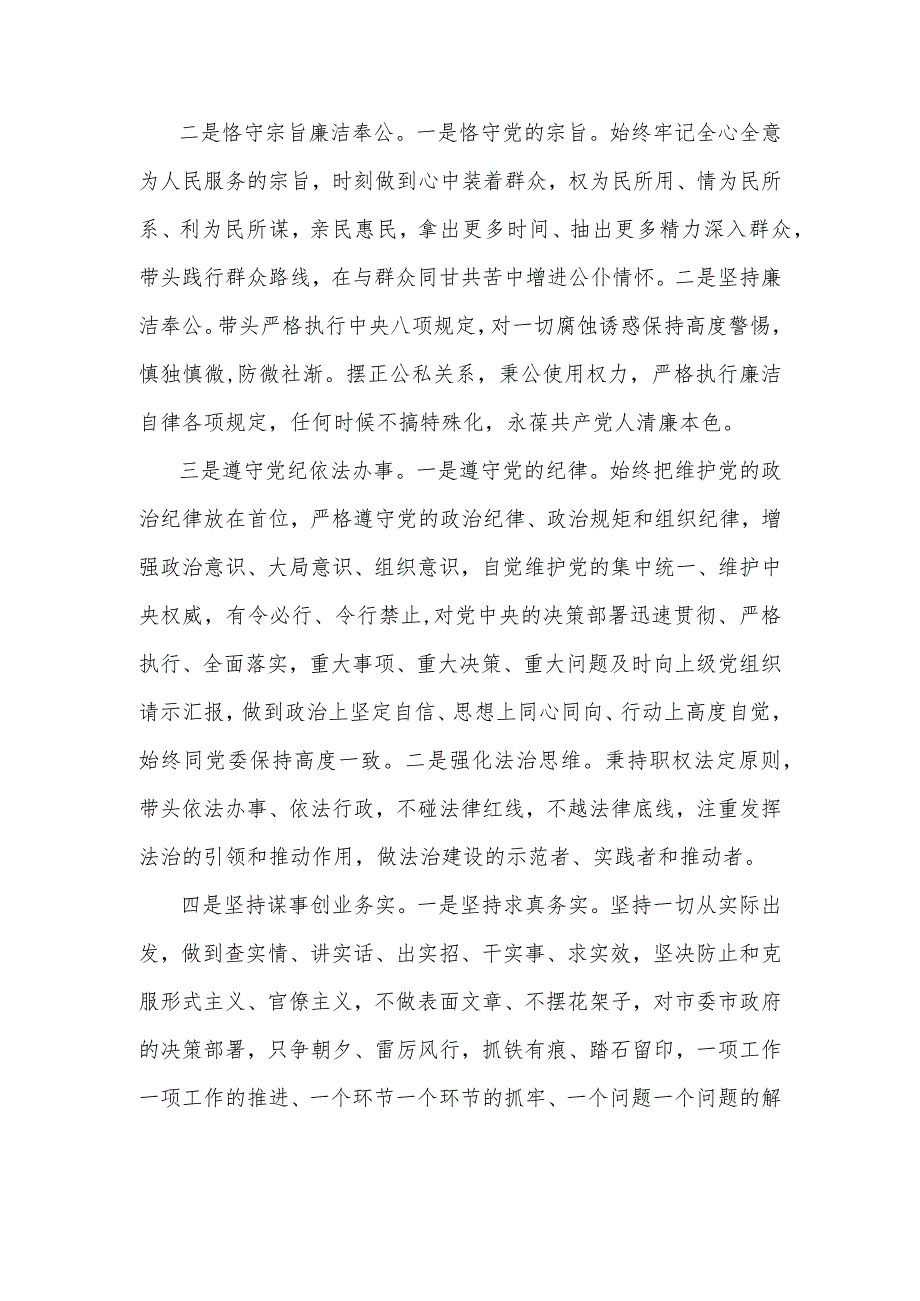 二是恪守宗旨廉洁奉公。一是恪守党的宗旨。始终牢记全心全意
为人民服务的宗旨，时刻做到心中装着群众，权为民所用、情为民所
系、利为民所谋，亲民惠民，拿出更多时间、抽出更多精力深入群众，
带头践行群众路线，在与群众同甘共苦中增进公仆情怀。二是坚持廉
洁奉公。带头严格执行中央八项规定，对一切腐蚀诱惑保持高度警惕，
慎独慎微,防微社渐。摆正公私关系，秉公使用权力，严格执行廉洁
自律各项规定，任何时候不搞特殊化，永葆共产党人清廉本色。
三是遵守党纪依法办事。一是遵守党的纪律。始终把维护党的政
治纪律放在首位，严格遵守党的政治纪律、政治规矩和组织纪律，增
强政治意识、大局意识、组织意识，自觉维护党的集中统一、维护中
央权威，有令必行、令行禁止,对党中央的决策部署迅速贯彻、严格
执行、全面落实，重大事项、重大决策、重大问题及时向上级党组织
请示汇报，做到政治上坚定自信、思想上同心同向、行动上高度自觉，
始终同党委保持高度一致。二是强化法治思维。秉持职权法定原则，
带头依法办事、依法行政，不碰法律红线，不越法律底线，注重发挥
法治的引领和推动作用，做法治建设的示范者、实践者和推动者。
四是坚持谋事创业务实。一是坚持求真务实。坚持一切从实际出
发，做到查实情、讲实话、出实招、干实事、求实效，坚决防止和克
服形式主义、官僚主义，不做表面文章、不摆花架子，对市委市政府
的决策部署，只争朝夕、雷厉风行，抓铁有痕、踏石留印，一项工作
一项工作的推进、一个环节一个环节的抓牢、一个问题一个问题的解